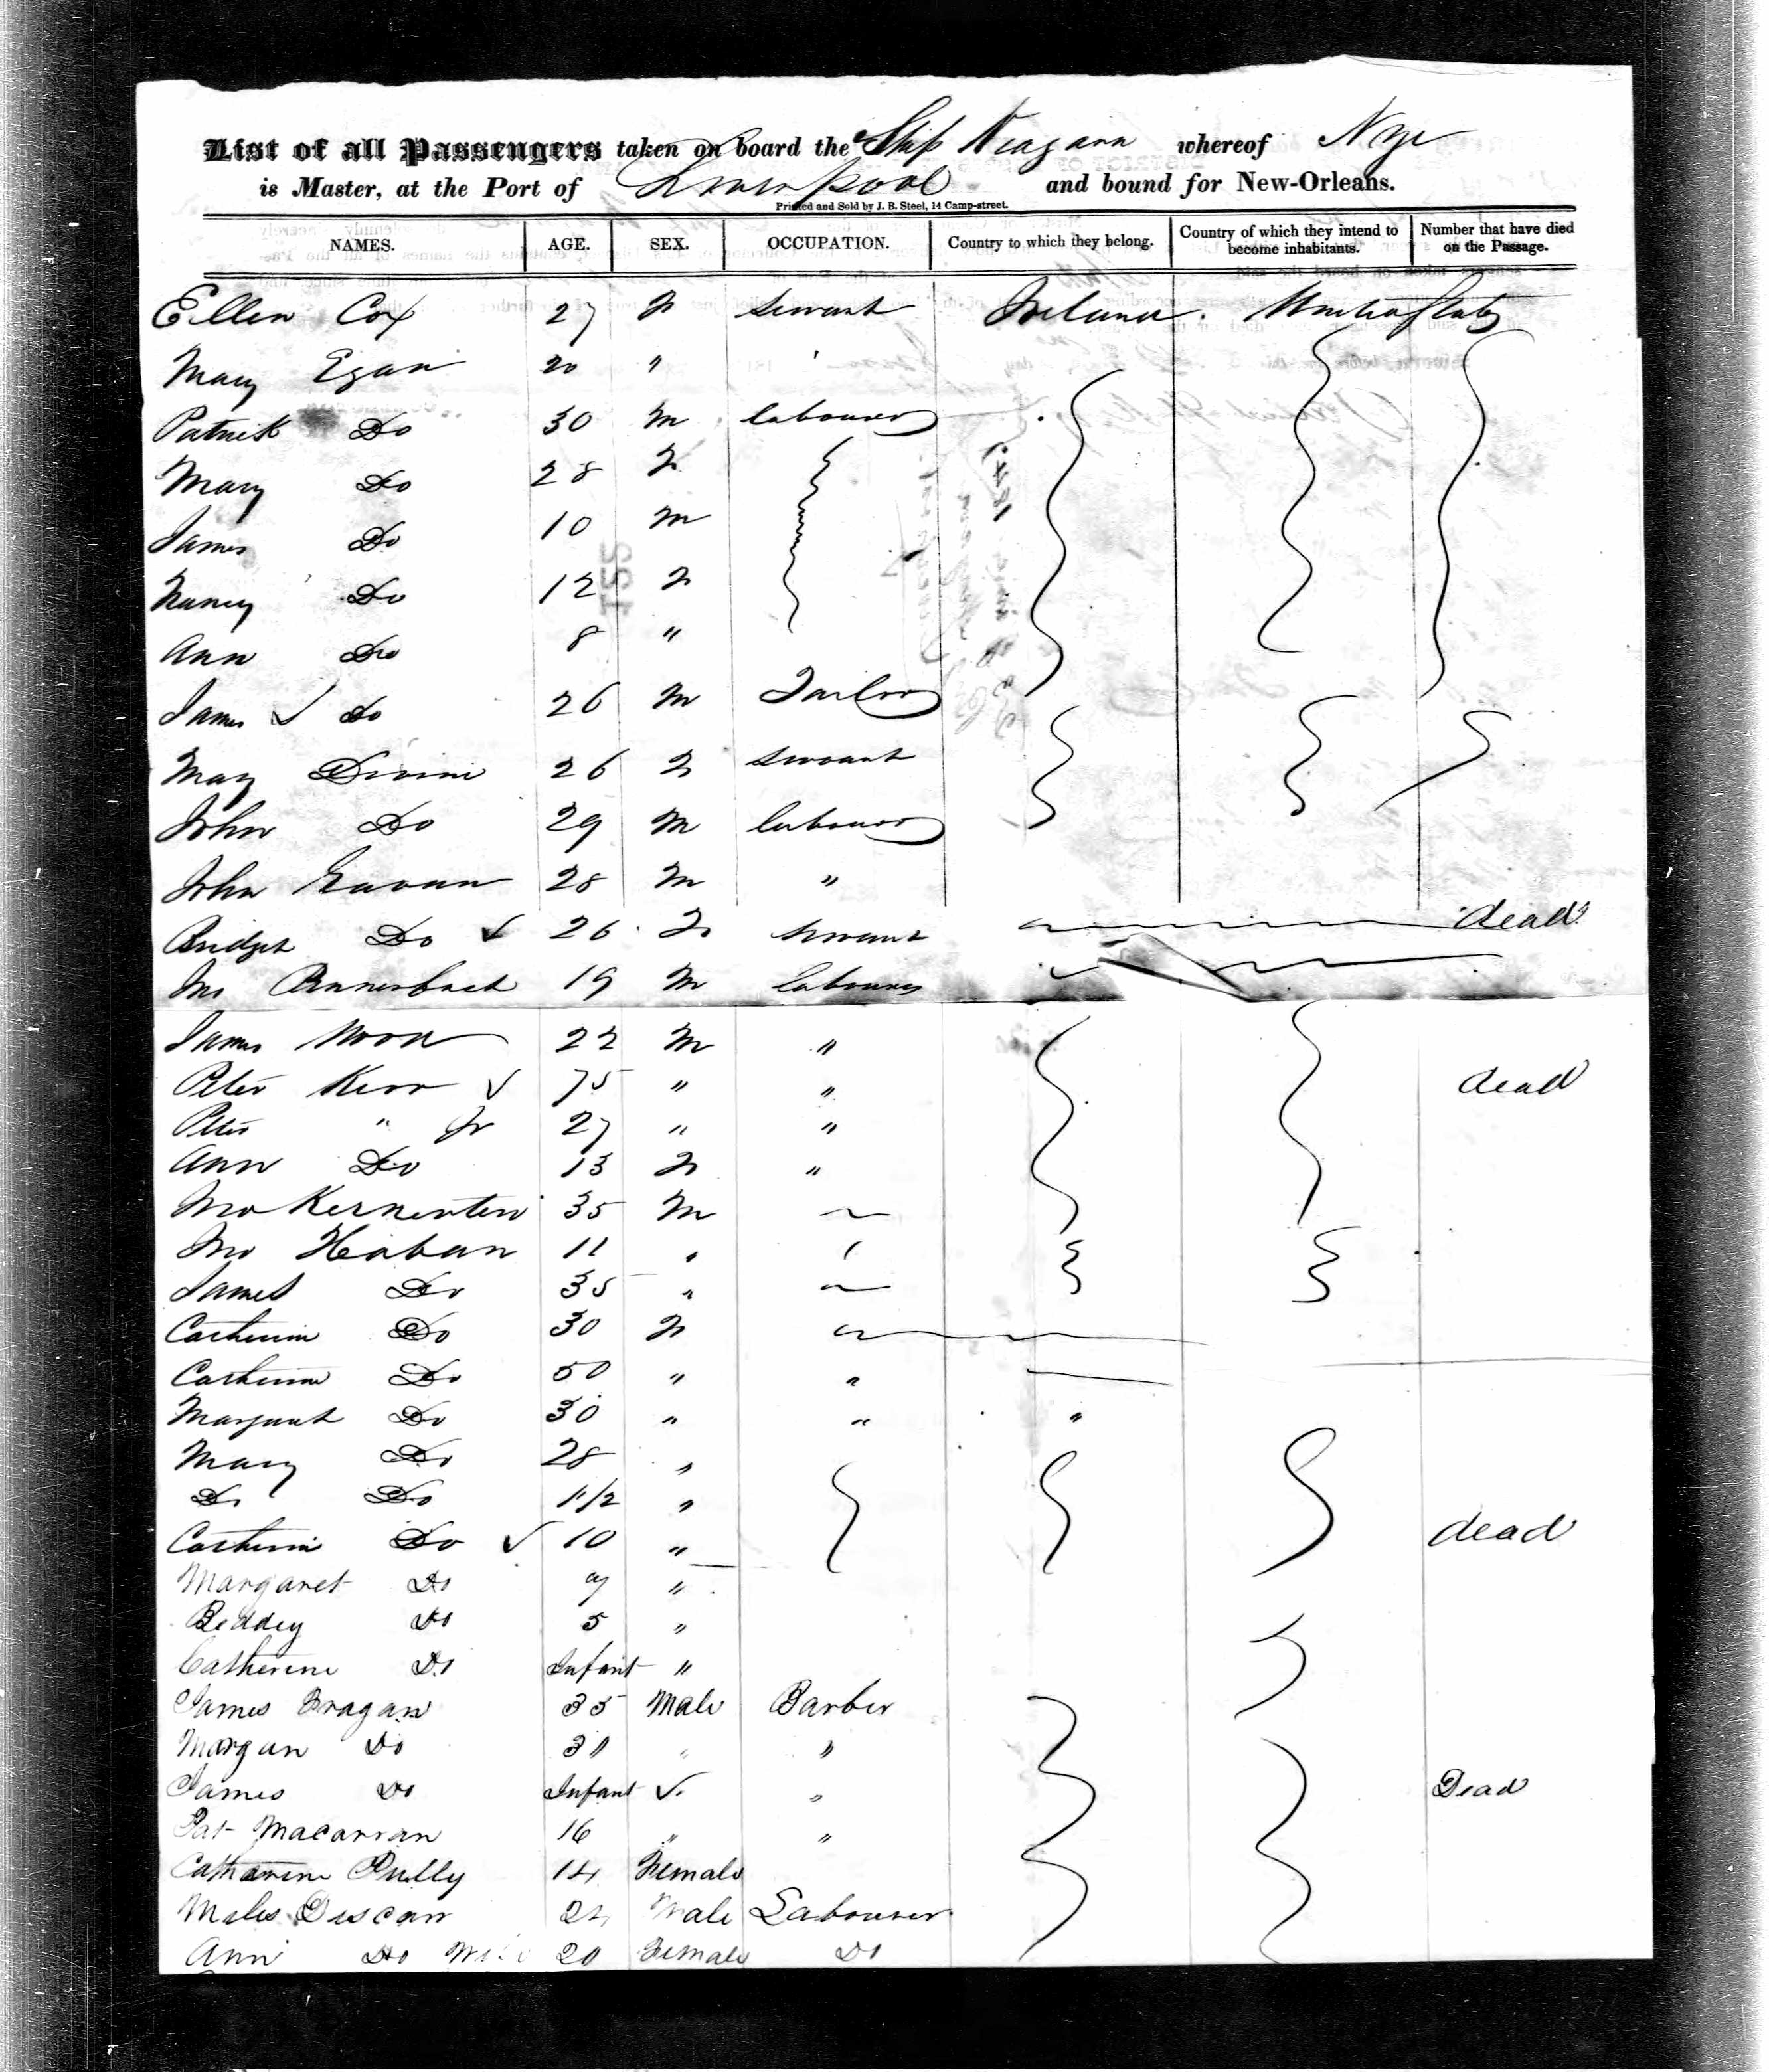 List of all Passengers taken on board the Ship Niagara whereof Nye
is Master, at the Port of Liverpool and bound for New-Orleans.
Printed and Sold by J. B. Steel, 14 Camp-street.
NAMES. AGE. SEX. OCCUPATION. Country to which they belong. Country of which they intend to become inhabitants. Number that have died on the Passage.
Ellen Cox 27 F Servant Ireland. United States
Mary Egan 20 "
Patrick Do 30 M labourer
Mary Do 28 F
James Do 10 M
Nancy Do 12 F
Ann Do 8 "
James Do 26 M Tailor
Mary Divini 26 F Servant
John Do 29 M labourer
John Gavan 28 M "
Bridget Do 26 F Servant dead
Jno 19 M labourer
James Wood 22 M "
Peter Kerr 75 " " dead
Peter " Jr 27 " "
Ann Do 13 F "
Jno 35 M
Jno Heaban 11 "
James Do 35 "
Catherin Do 30 F
Catherin Do 50 " "
Margaret Do 30 " " "
Mary Do 28 "
Do Do 1 1/2 "
Catherin Do 10 " dead
Margaret Do 7 "
Beddey Do 5 "
Catherine Do Infant "
James Bragan 35 Male Barber
Morgan Do 30 " "
James Do Infant " Dead
Pat Macarran 16 " "
Catharine Pully 14 Female
Miles Duscan 24 Male Labourer
Ann Do Wife 20 Female Do